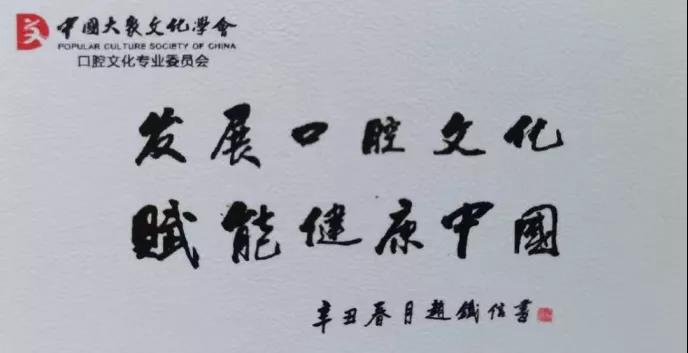 中國大衆文化学會
POPULAR CULTURE SOCIETY OF CHINA
口腔文化专业委员会
发展口腔文化
赋能健康中國
辛丑春月趙鐵信書